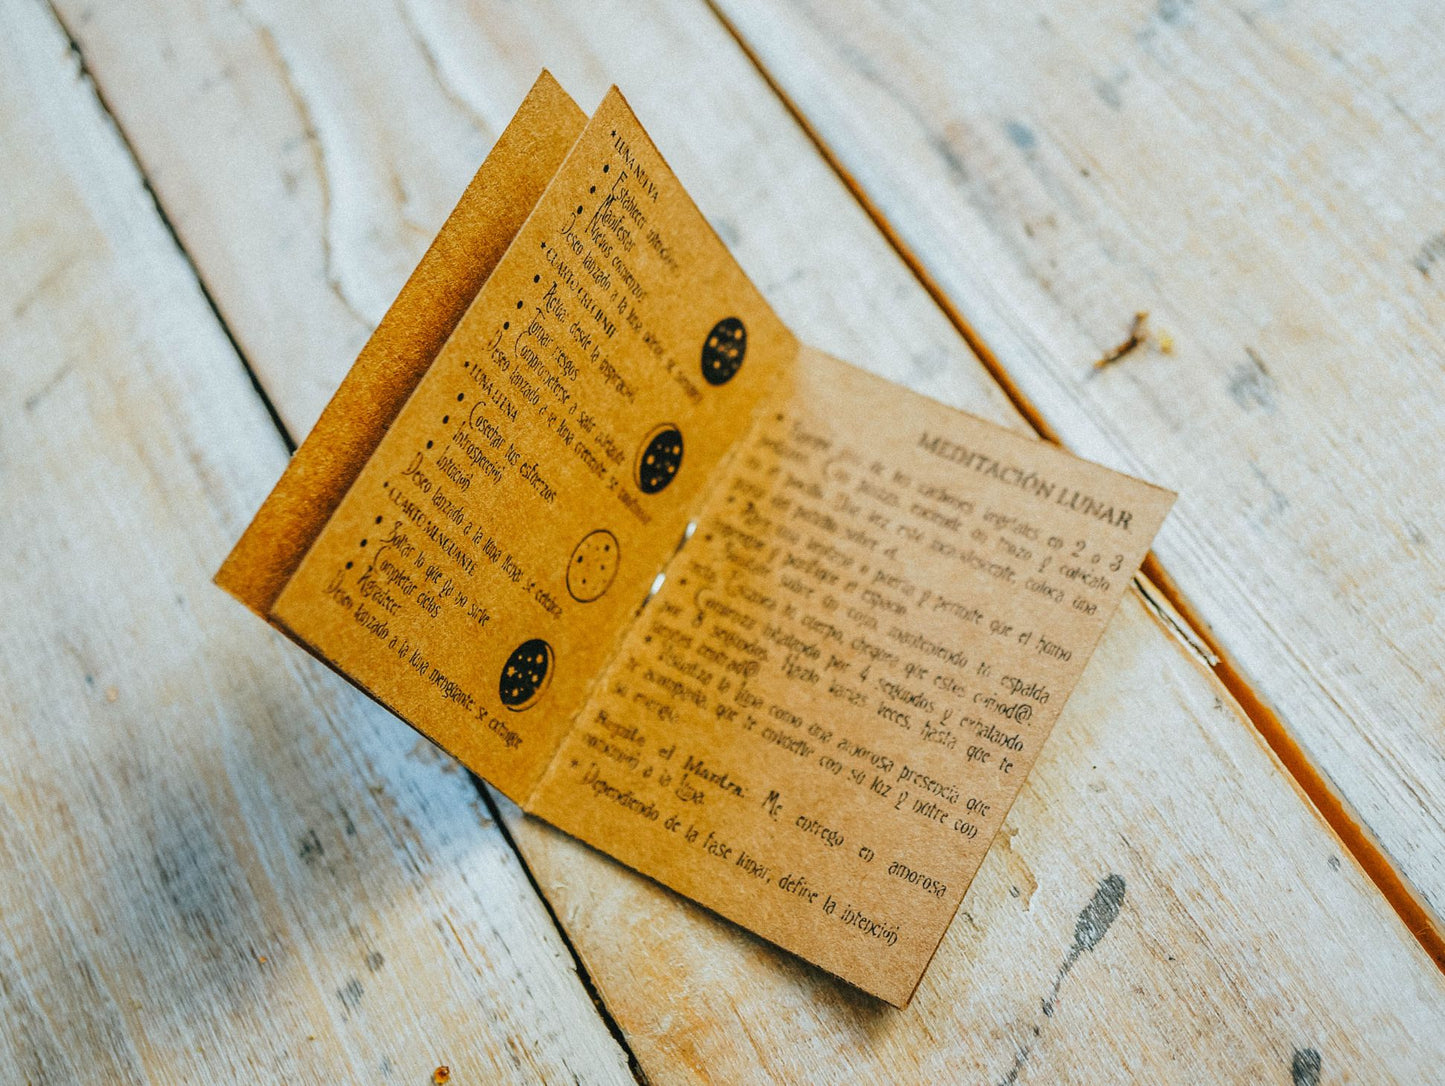 * LUNA NUEVA
• Establecer intención.
• Manifestar
• Nuevos comienzos
Deseo lanzado a la luna nueva: se
* CUARTO CRECIENTE
• Actuar desde la inspiración
• Tomar riesgos
• Comprometerse a salir adelante
Deseo lanzado a la luna creciente: se
* LUNA LLENA
• Cosechar tus esfuerzos
• Introspección
• Intuición
Deseo lanzado a la luna llena: se celebra
* CUARTO MENGUANTE
• Soltar lo que ya no sirve
• Completar ciclos
• Agradecer
Deseo lanzado a la luna menguante: se extingue
MEDITACIÓN LUNAR
de los carbones vegetales en 2 o 3
pedazos. Con pinzas, enciende un trozo y colócalo
Una vez esté incandescente, coloca una
sobre él.
puerta y permite que el humo
y purifique el espacio.
• Siéntate sobre un cojín, manteniendo tu espalda
tu cuerpo, chequea que estés comod@.
• Comienza inhalando por 4 segundos y exhalando
por 8 segundos. Hazlo varias veces, hasta que te
sientas centrad@.
• Visualiza la luna como una amorosa presencia que
te acompaña, que te envuelve con su luz y nutre con
su energía.
Repite el Mantra: Me entrego en amorosa
a la Luna.
* Dependiendo de la fase lunar, define la intención